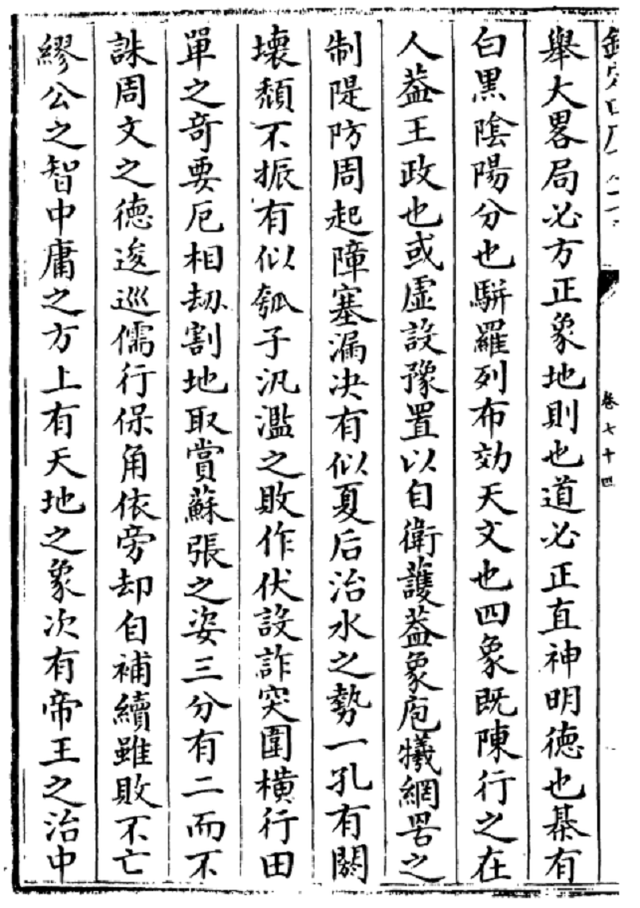 卷七十四
舉大畧局必方正象地則也道必正直神明德也棊有
白黒隂陽分也駢羅列布効天文也四象既陳行之在
人葢王政也或虚設豫置以自衛護葢象庖犧網罟之
制隄防周起障塞漏决有似夏后治水之勢一孔有闕
壊頽不振有似瓠子汎濫之敗作伏設詐突圍横行田
單之竒要厄相刼割地取賞蘇張之姿三分有二而不
誅周文之徳逡巡儒行保角依旁却自補續雖敗不亡
繆公之智中庸之方上有天地之象次有帝王之治中